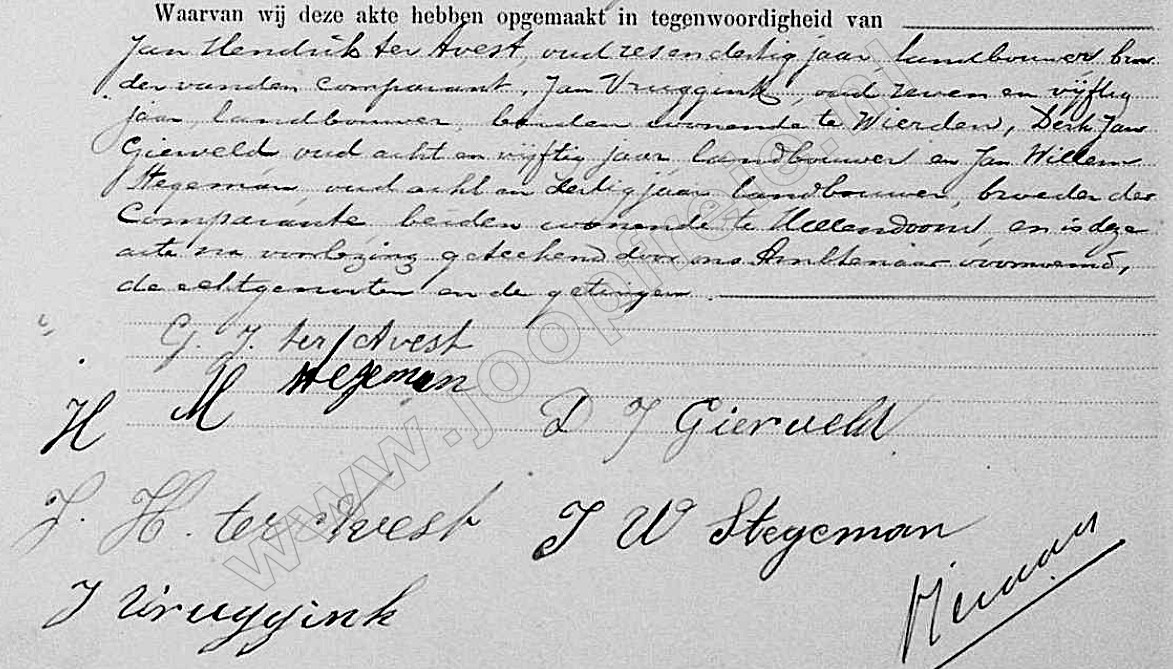 Waarvan wij deze akte hebben opgemaakt in tegenwoordigheid van
Jan Hendrik ter Avest, oud zesendertig jaar, landbouwer, broe-
der van den Comparant, Jan Vruggink, oud zeven en vijftig
jaar, landbouwer, beiden wonende te Wierden, Derk Jan
Gierveld oud acht en vijftig jaar, landbouwer en Jan Willem
Stegeman oud acht en dertig jaar landbouwer, broeder der
Comparante, beiden wonende te Hellendoorn, en is deze
acte na voorlezing geteekend door ons Ambtenaar voornoemd,
de echtgenooten en de getuigen.
G. J. ter Avest
H M Stegeman
D J Gierveld
J. H. ter Avest
J W Stegeman
J Vruggink
www.joopfrerie.nl